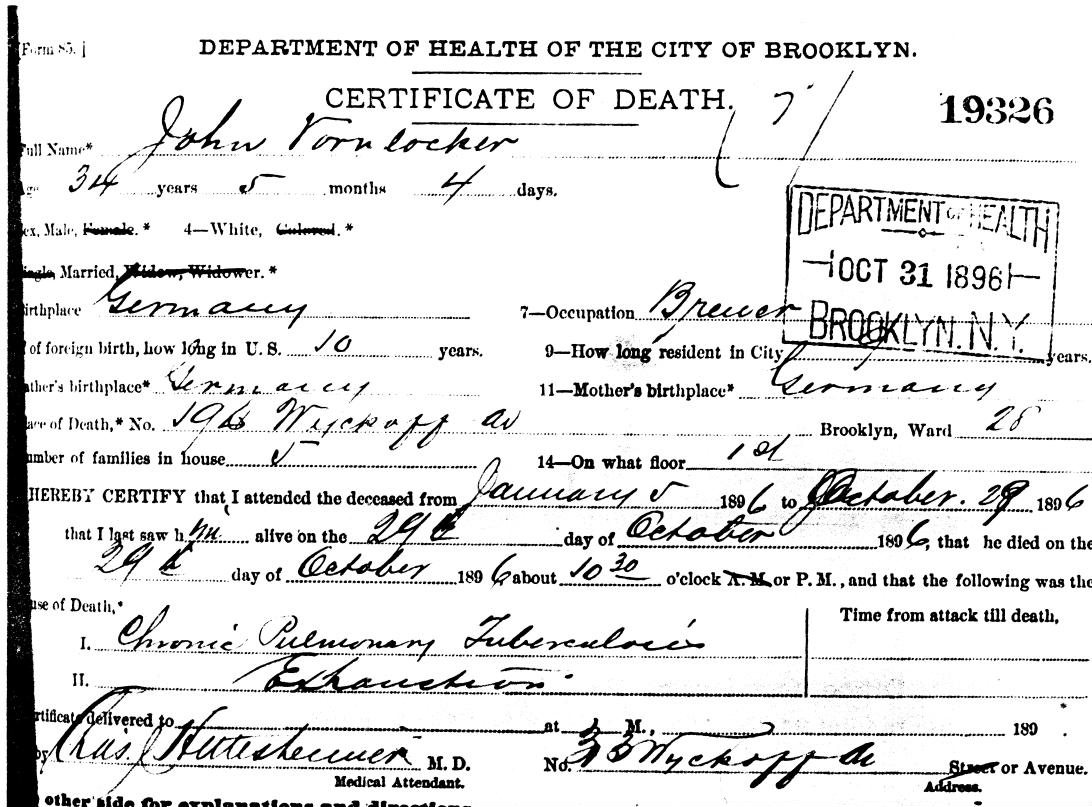 [Form 85.]
DEPARTMENT OF HEALTH OF THE CITY OF BROOKLYN.
CERTIFICATE OF DEATH.
19326
Full Name* John Vornlocker
Age 34 years 5 months 4 days.
DEPARTMENT OF HEALTH
OCT 31 1896
BROOKLYN. N.Y.
ex, Male, Female.* 4—White, Colored.*
ingle, Married, Widow, Widower.*
irthplace Germany 7—Occupation Brewer
of foreign birth, how long in U. S. 10 years. 9—How long resident in City years.
ather's birthplace* Germany 11—Mother's birthplace* Germany
ace of Death,* No. Wyckoff av Brooklyn, Ward 28
umber of families in house 5 14—On what floor 1st
HEREBY CERTIFY that I attended the deceased from January 5 1896 to October. 29 1896
that I last saw him alive on the 29th day of October 1896, that he died on the
29th day of October 1896 about 10 30 o'clock A. M. or P. M., and that the following was the
use of Death,* Time from attack till death,
I. Chronic Pulmonary Tuberculosis
II. Exhaustion
ertificate delivered to at M., 189
by Chas. M. D. No. 33 Wyckoff Av Street or Avenue.
Medical Attendant. Address.
other side for explanations and directions